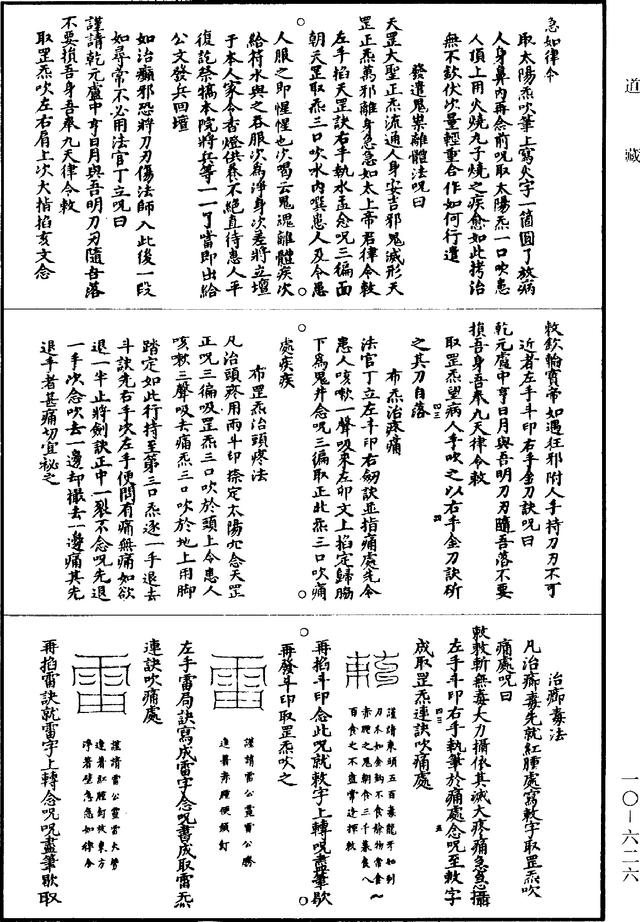 道藏
急如律令
取太陽炁吹筆上寫火字一箇圓了放病
人身鼻內再念前呪取太陽炁一口吹患
人頂上用火燒九子燒之疾愈如此拷治
無不欽伏次量輕重合作如何行遣
發遣鬼祟離體法呪曰
天罡大聖正炁流通人身安吉邪鬼滅形天
罡正炁萬邪離身急急如太上帝君律令敕
左手掐天罡訣右手執水盂念呪三徧面
朝天罡取炁三口吹水內噀患人及令患
人服之即惺惺也次喝云鬼魂離體疾次
給符水與之吞服次為淨身次差將立壇
于本人家令香燈供養不絕直待患人平
復訖祭犒本院將兵等一一了當即出給
公文發兵回壇
如治癲邪恐將刀刃傷法師入此後一段
如尋常不必用法官丁立呪曰
謹請乾元盧中亨日月與吾明刀刃隨吾落
不要損吾身吾奉九天律令敕
取罡炁吹左右肩上次大指掐亥文念
敕欽輪寶帝如遇狂邪附人手持刀刃不可
近者左手斗印右手金刀訣呪曰
乾元盧中亨日月與吾明刀刃隨吾落不要
損吾身吾奉九天律令敕
取罡炁望病人手吹之以右手金刀訣斫
之其刀自落
布炁治疼痛
法官丁立左斗印右劒訣並指痛處先令
患人咳嗽一聲吸來左卯文上掐定歸腸
下為鬼井念呪三徧取正北炁三口吹痛
處疾疾
布罡炁治頭疼法
凡治頭疼用兩斗印捺定太陽穴念天罡
正呪三徧吸罡炁三口吹於頭上令患人
咳嗽三聲吸去痛炁三口吹於地上用脚
踏定如此行持至第三口炁逐一手退去
斗訣先右手次左手便問有痛無痛如欲
退一半止將劍訣正中一裂不念呪先退
一手次念吹去一邊却撤去一邊痛其先
退手者甚痛切宜祕之
治瘹毒法
凡治瘹毒先就紅腫處寫敕字取罡炁吹
痛處呪曰
敕敕斬無毒大刀攝依其滅大疼痛急急攝
左手斗印右手執筆於痛處念呪至敕字
成取罡炁連訣吹痛處
謹請東頭五百毒龍牙如到
刀爪如金鈎不食餘物常食
赤腫之鬼朝食三千暮食八
百食之不盡常逢釋敕
再掐斗印念此呪就敕字上轉呪盡筆歇
再發斗印取罡炁吹之
謹請雷公靈雷公勝
連書赤腫便須釘
左手雷局訣寫成雷字念呪書成取雷炁
連訣吹痛處
謹請雷公靈雷大勞
連書紅腫釘放東方
淨著壁急急如律令
再掐雷訣就雷字上轉念呪呪盡筆歇取
一〇—六二六